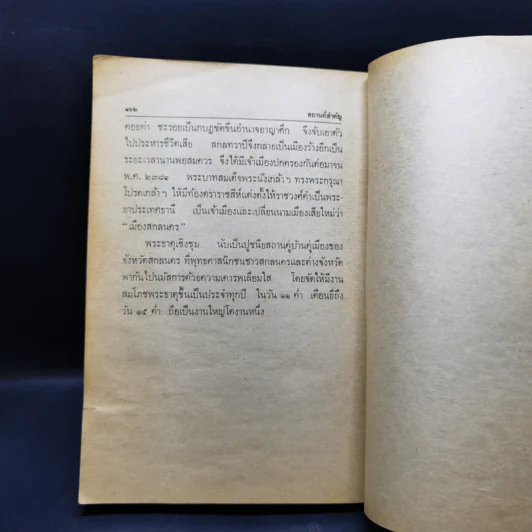 ๑๖๒ สถานที่สำคัญ
คอยท่า ชะรอยเป็นกบฏขัดขืนอำนาจอาญาศึก จึงจับเอาตัว
ไปประหารชีวิตเสีย สกลทวาปีจึงกลายเป็นเมืองร้างอีกเป็น
ระยะเวลานานพอสมควร จึงได้มีเจ้าเมืองปกครองกันต่อมาจน
พ.ศ. ๒๓๘๑ พระบาทสมเด็จพระนั่งเกล้า ฯ ทรงพระกรุณา
โปรดเกล้า ฯ ให้มีท้องตราราชสีห์แต่งตั้งให้ราชวงศ์คำเป็นพระ-
ยาประเทศธานี เป็นเจ้าเมืองและเปลี่ยนนามเมืองเสียใหม่ว่า
“เมืองสกลนคร”
พระธาตุเชิงชุม นับเป็นปูชนียสถานคู่บ้านคู่เมืองของ
จังหวัดสกลนคร ที่พุทธศาสนิกชนชาวสกลนครและต่างจังหวัด
พากันไปนมัสการด้วยความเคารพเลื่อมใส โดยจัดให้มีงาน
สมโภชพระธาตุขึ้นเป็นประจำทุกปี ในวัน ๑๑ ค่ำ เดือนยี่ถึง
วัน ๑๕ ค่ำ ถือเป็นงานใหญ่โตงานหนึ่ง